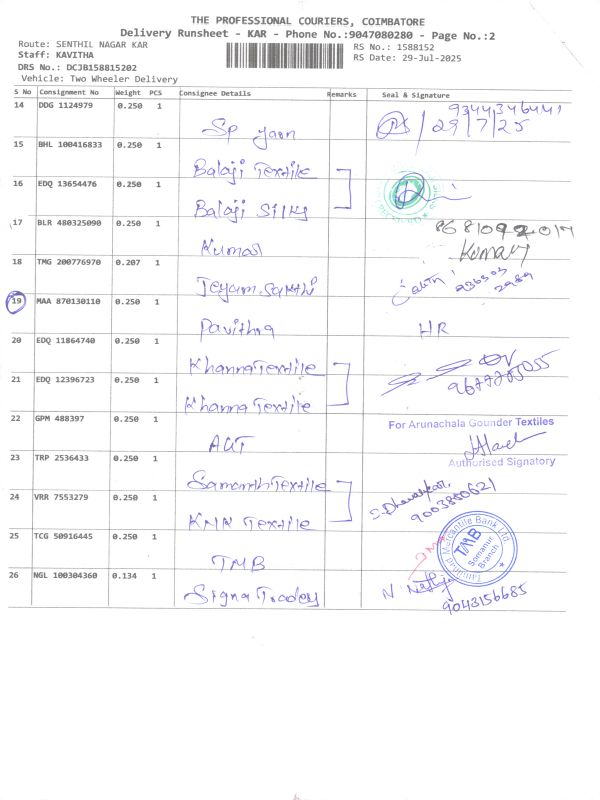 THE PROFESSIONAL COURIERS, COIMBATORE
Delivery Runsheet - KAR - Phone No.:9047080280 - Page No.:2
Route: SENTHIL NAGAR KAR RS No.: 1588152
Staff: KAVITHA RS Date: 29-Jul-2025
DRS No.: DCJB158815202
Vehicle: Two Wheeler Delivery
S No Consignment No Weight PCS Consignee Details Remarks Seal & Signature
14 DDG 1124979 0.250 1 Sp yarn 9344346441
29/7/25
15 BHL 100416833 0.250 1 Balaji Textile
16 EDQ 13654476 0.250 1 Balaji Silks
17 BLR 480325090 0.250 1 Kumar 8681092017
Kumar
18 TMG 200776970 0.207 1 Jeyam Sakthi
19 MAA 870130110 0.250 1 Pavithra HR
20 EDQ 11864740 0.250 1 Khanna Textile
21 EDQ 12396723 0.250 1 Khanna Textile
22 GPM 488397 0.250 1 AGT For Arunachala Gounder Textiles
Authorised Signatory
23 TRP 2536433 0.250 1 Textile
24 VRR 7553279 0.250 1 KNR Textile 9003850621
25 TCG 50916445 0.250 1 TMB
Tamilnad Mercantile Bank Ltd.
TMB
Somanur
Branch
26 NGL 100304360 0.134 1 Signa Traders N
9043156685